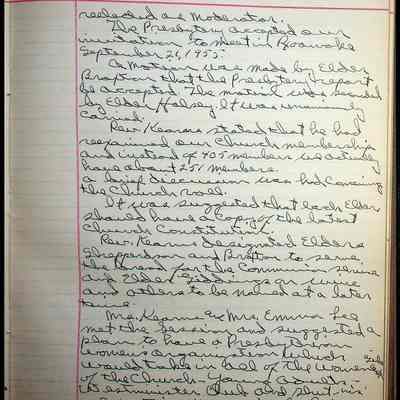 reelected as Moderator.
The Presbytery accepted our
invitation to meet in Roanoke
September 26, 1955.
A Motion was made by Elder
Brafton that the Presbytery report
be accepted. The motion was seconded
by Elder Halsey. It was unanimously
carried.
Rev. Kearns stated that he had
reexamined our Church membership
and instead of 405 members we actually
have about 251 members.
a brief discussion was had concerning
the Church roll.
It was suggested that each Elder
should have a copy of the latest
Church Constitution.
Rev. Kearns designated Elders
Shepperdson and Brafton to serve
the bread for the Communion service
and Elder Giddings on wine
and others to be named at a later
time.
Mrs. Kearns & Mrs. Emma Lee
met the Session and suggested a
plan to have a Presbyterian
Womens Organization which
would take in all of the Women
of the Church - Young Adults -
Westminster Club and Shut-ins